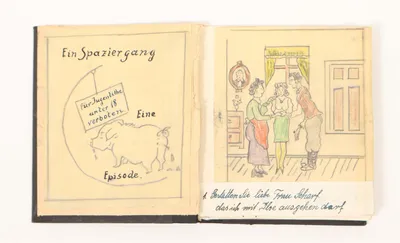 Ein Spaziergang
Für Jugendliche
unter 18
verboten
Eine
Episode.
1. Gestatten Sie liebe Frau Scharf
das ich mit Ihr ausgehen darf